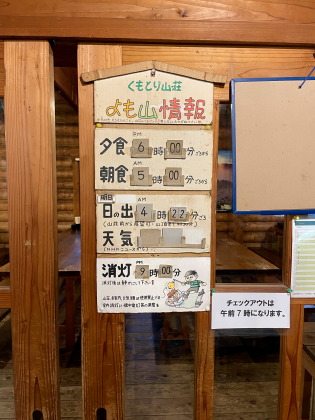 くもとり山荘
よも山情報
PM
夕食 6時00分ごろから
AM
朝食 5時00分ごろから
明日 AM
日の出 4時22分ごろ
天気
PM
消灯 9時00分
チェックアウトは
午前7時になります。